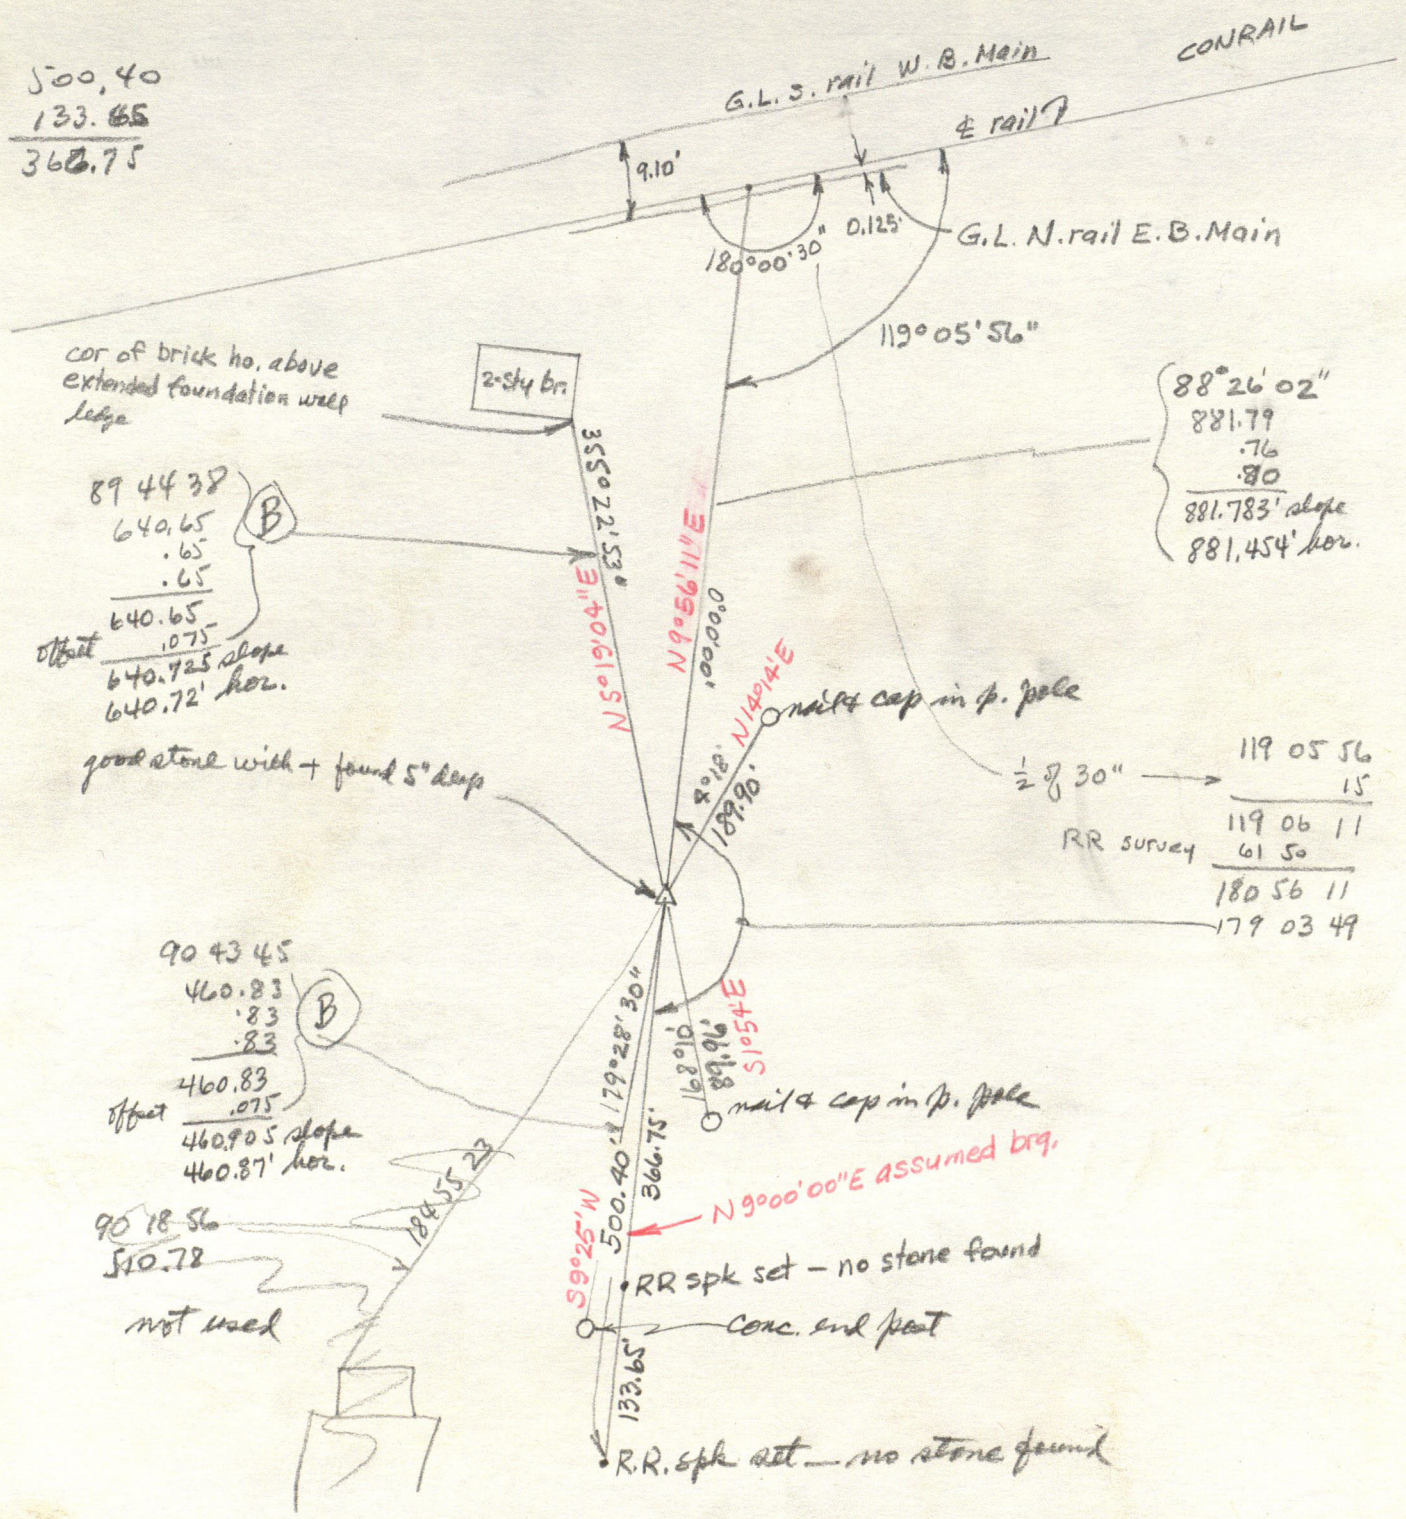 500.40
133.65
366.75
G.L. S. rail W.B. Main
CONRAIL
℄ rail
9.10'
0.125'
G.L. N. rail E.B. Main
180°00'30"
119°05'56"
cor of brick ho. above
extended foundation wall
ledge
2-Sty br.
88°26'02"
881.79
.76
.80
881.783' slope
881.454' hor.
355°22'53"
N5°19'04"E
N9°56'11"E
0°00'00"
89 44 38
640.65
.65
.65
640.65
offset .075
640.725 slope
640.72' hor.
B
N14°14'E
nail & cap in p. pole
8°18'
189.90'
good stone with + found 5" deep
½ of 30"
119 05 56
15
119 06 11
RR survey 61 50
180 56 11
179 03 49
90 43 45
460.83
.83
.83
460.83
offset .075
460.905 slope
460.87' hor.
B
179°28'30"
168°10'
89.96'
S1°54'E
nail & cap in p. pole
184 55 23
90 18 56
510.78
not used
500.40'
366.75'
N 9°00'00"E assumed brg.
S9°25'W
RR spk set – no stone found
conc. end post
133.65'
R.R. spk set – no stone found